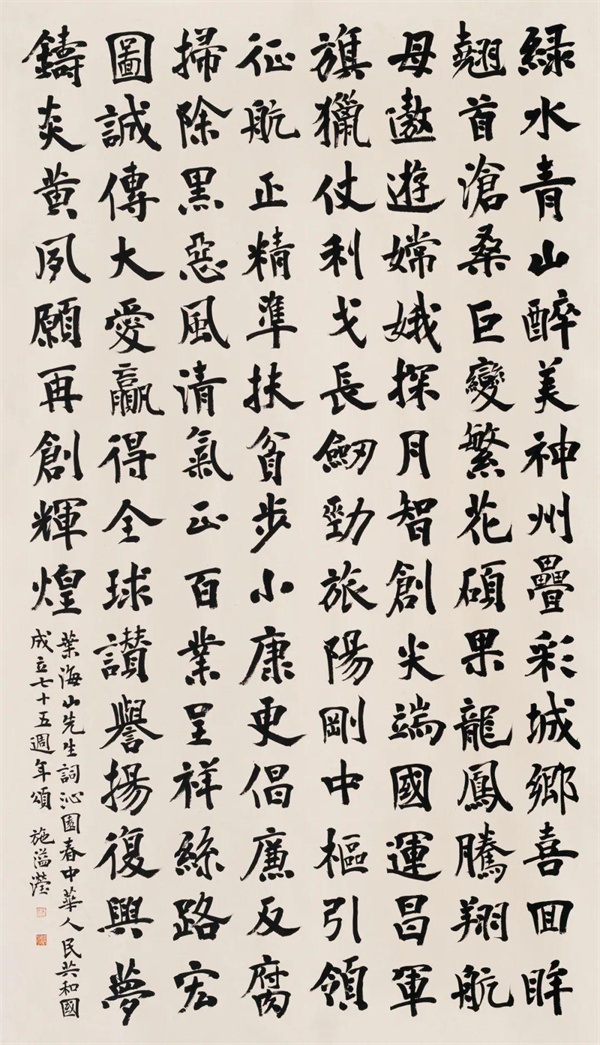 綠水青山醉美神州疊彩城鄉喜回眸
翹首滄桑巨變繁花碩果龍鳳騰翔航
母遨遊嫦娥探月智創尖端國運昌軍
旗獵仗利戈長劒勁旅陽剛中樞引領
征航正精準扶貧步小康更倡廉反腐
掃除黑惡風清氣正百業呈祥絲路宏
圖誠傳大愛贏得全球讚譽揚復興夢
鑄炎黃夙願再創輝煌
葉海山先生詞沁園春中華人民共和國
成立七十五週年頌 施溢瀅